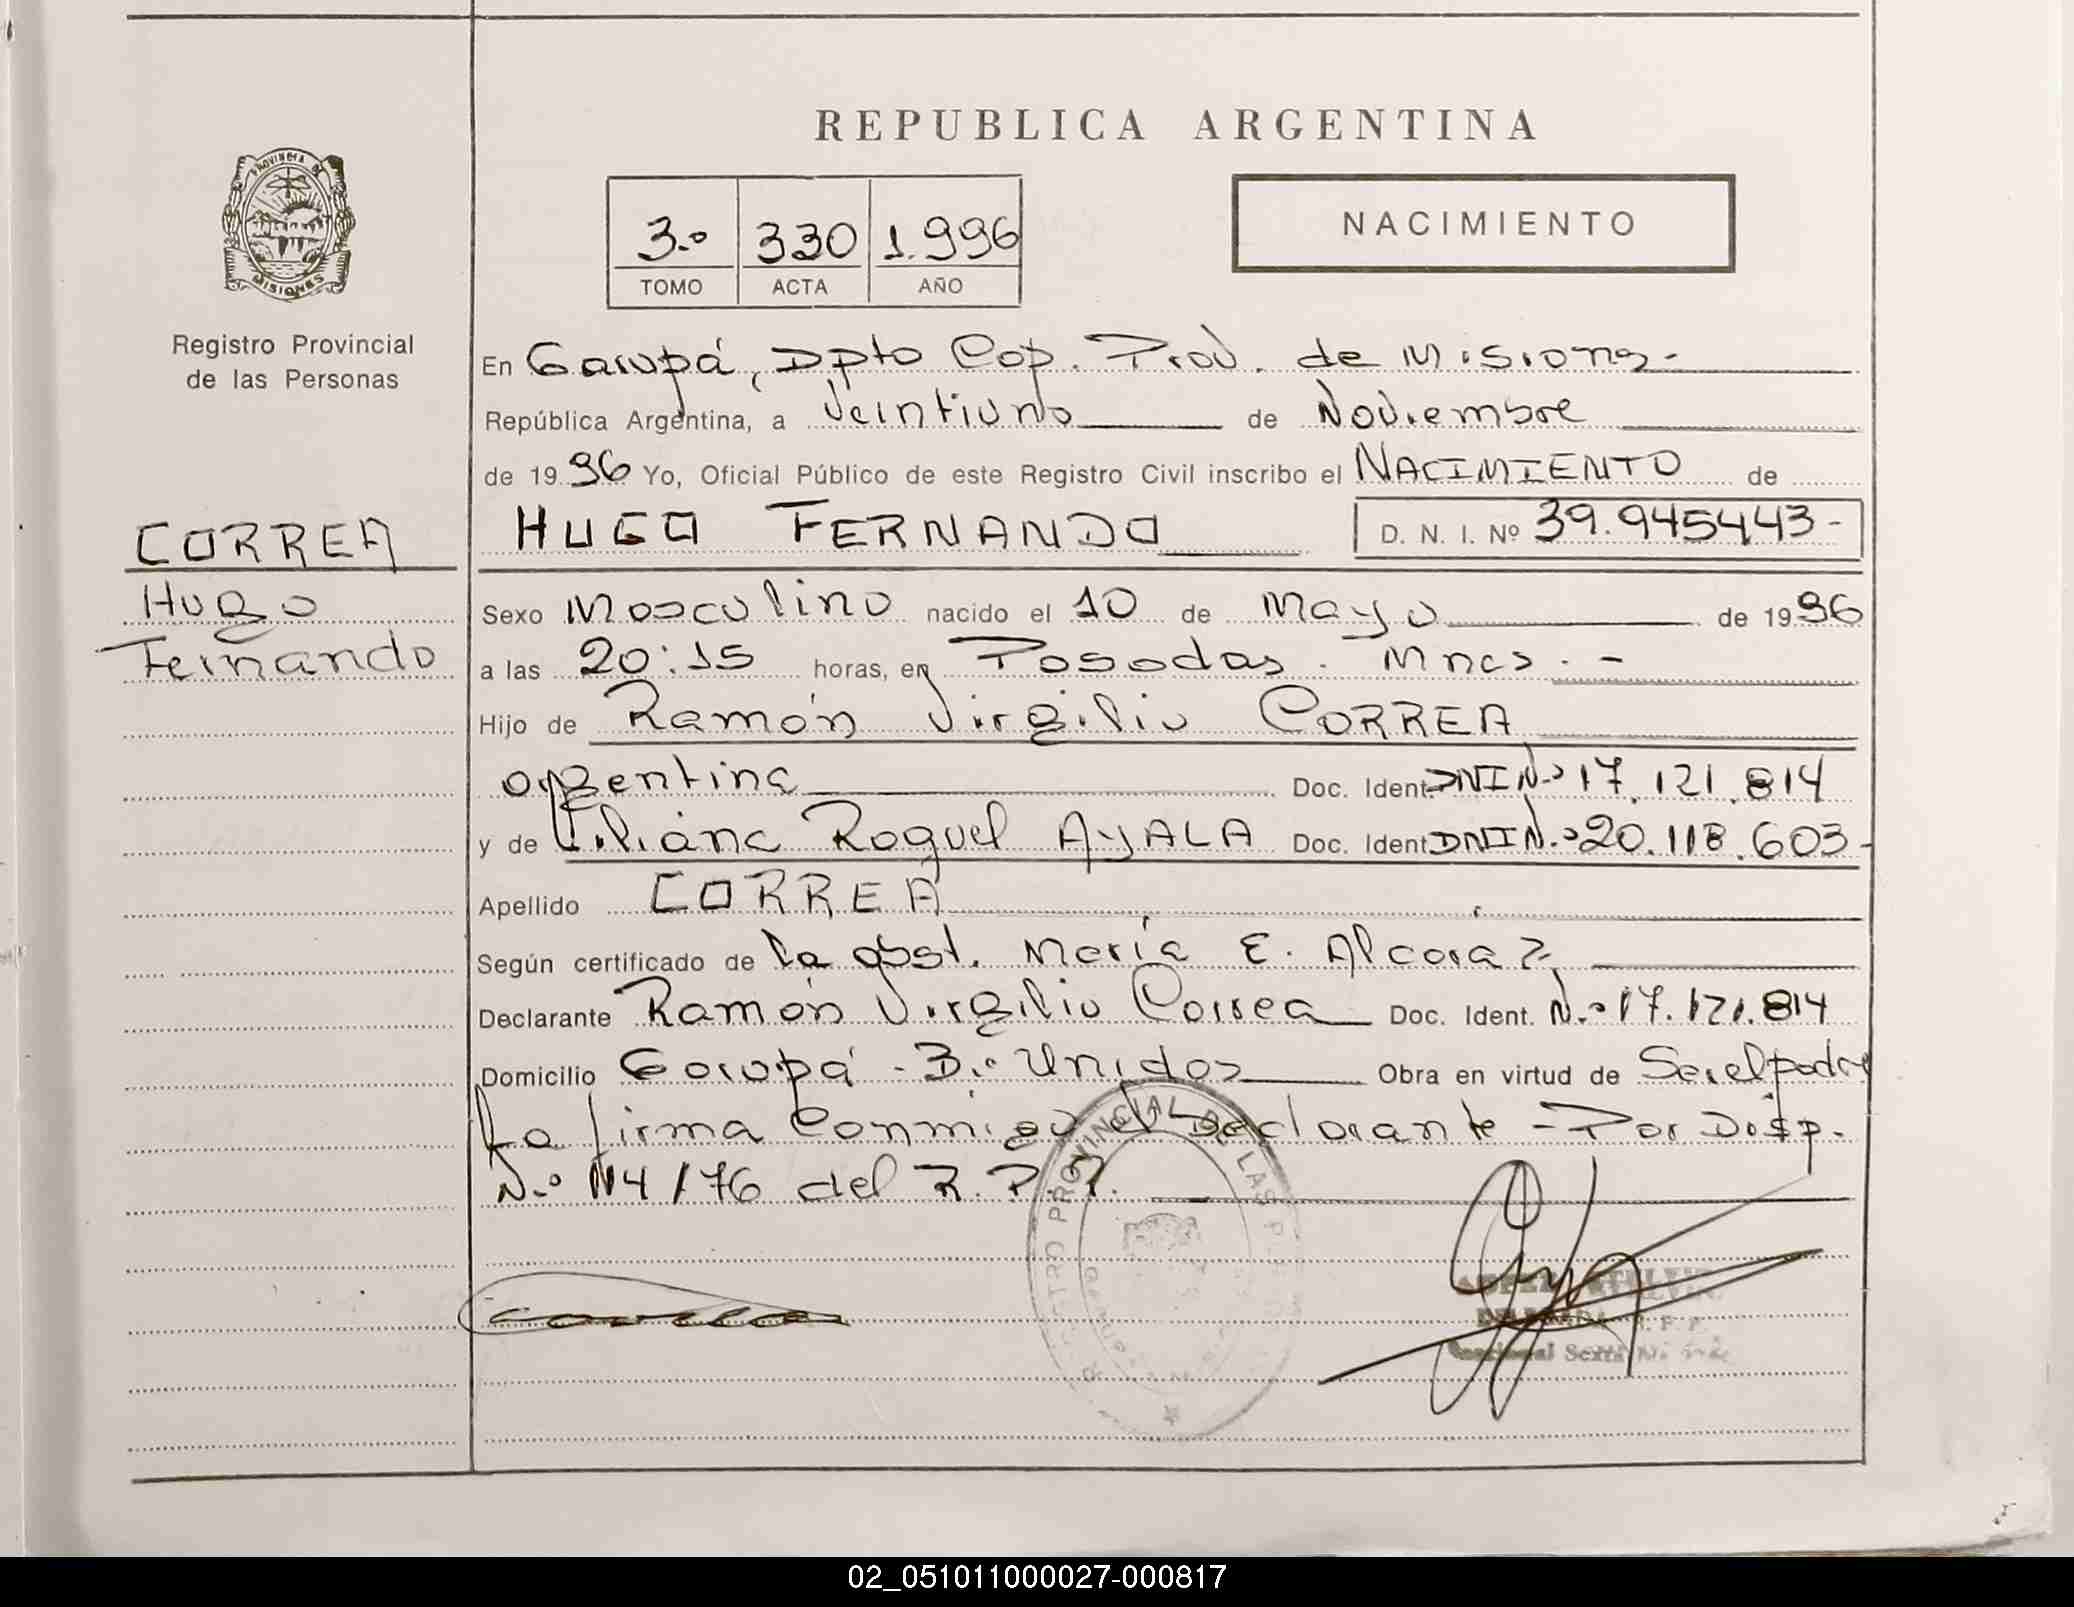 REPUBLICA ARGENTINA
PROVINCIA DE
MISIONES
Registro Provincial
de las Personas
3.º 330 1.996
TOMO ACTA AÑO
NACIMIENTO
En Garupá, Dpto Cap. Prov. de Misiones-
República Argentina, a Veintiuno de Noviembre
de 1996 Yo, Oficial Público de este Registro Civil inscribo el NACIMIENTO de
CORREA
Hugo
Fernando
HUGO FERNANDO D. N. I. Nº 39.945443-
Sexo Masculino nacido el 10 de Mayo de 1996
a las 20:15 horas, en Posadas. Mnes.-
Hijo de Ramón Virgilio CORREA
argentina Doc. Ident. DNI N.º 17.121.814
y de Liliana Raquel AyALA Doc. Ident. DNI N.º 20.118.603-
Apellido CORREA
Según certificado de la obst. María E. Alcaraz
Declarante Ramón Virgilio Correa Doc. Ident. N.º 17.121.814
Domicilio Garupá - B.º Unidos Obra en virtud de Ser el padre
La firma Conmigo el Declarante - Por Disp.
N.º 114/76 del R.P.P.
REGISTRO PROVINCIAL DE LAS
Correa
DELEGADA R. P. P.
Seccional Sexta
02_051011000027-000817